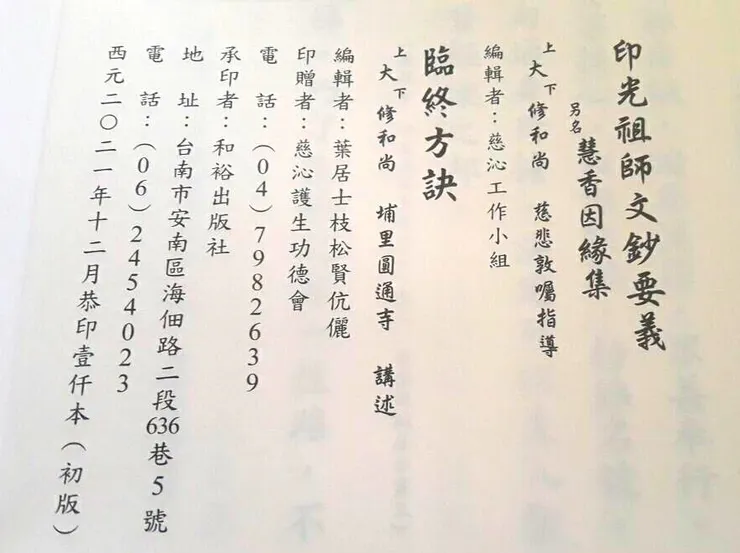 印光祖師文鈔要義
另名 慧香因緣集
上大下修和尚 慈悲敦囑指導
編輯者：慈沁工作小組
臨終方訣
上大下修和尚 埔里圓通寺 講述
編輯者：葉居士枝松賢伉儷
印贈者：慈沁護生功德會
電話：(04)7982639
承印者：和裕出版社
地址：台南市安南區海佃路二段636巷5號
電話：(06)2454023
西元二〇二一年十二月恭印壹仟本（初版）